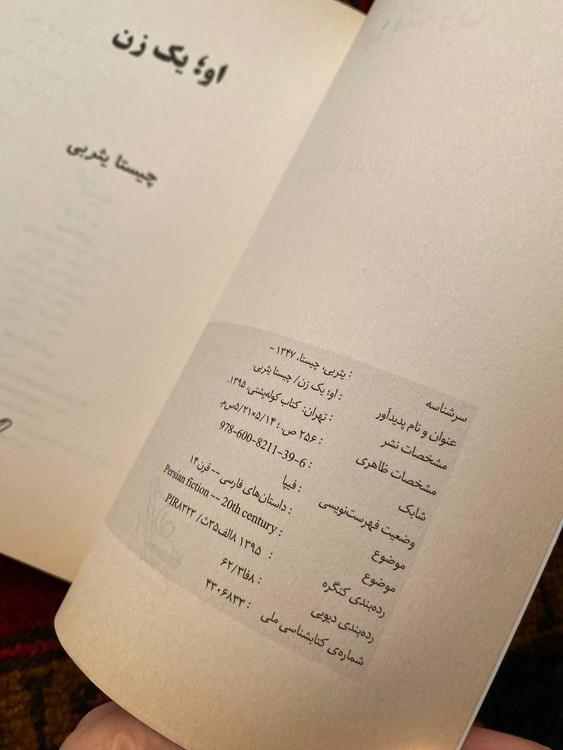 او؛ یک زن
چیستا یثربی
سرشناسه : یثربی، چیستا، ۱۳۴۷ -
عنوان و نام پدیدآور : او؛ یک زن/ چیستا یثربی.
مشخصات نشر : تهران: کتاب کوله‌پشتی، ۱۳۹۵.
مشخصات ظاهری : ۲۵۶ ص.؛ ۱۴/۵×۲۱/۵س‌م.
شابک : 978-600-8211-39-6
وضعیت فهرست‌نویسی : فیپا
موضوع : داستان‌های فارسی -- قرن ۱۴
موضوع : Persian fiction -- 20th century
رده‌بندی کنگره : ۱۳۹۵ ۸الف۳۵ث/ PIR۸۳۲۳
رده‌بندی دیویی : ۸فا۳/۶۲
شماره‌ی کتابشناسی ملی : ۴۳۰۶۸۳۳